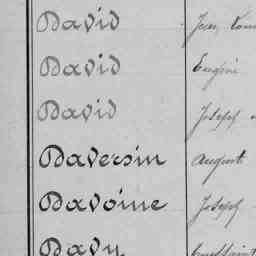 David Jean Louis
David Eugène
David Joseph
Daversin Auguste
Davoine Joseph
Davy Toussaint